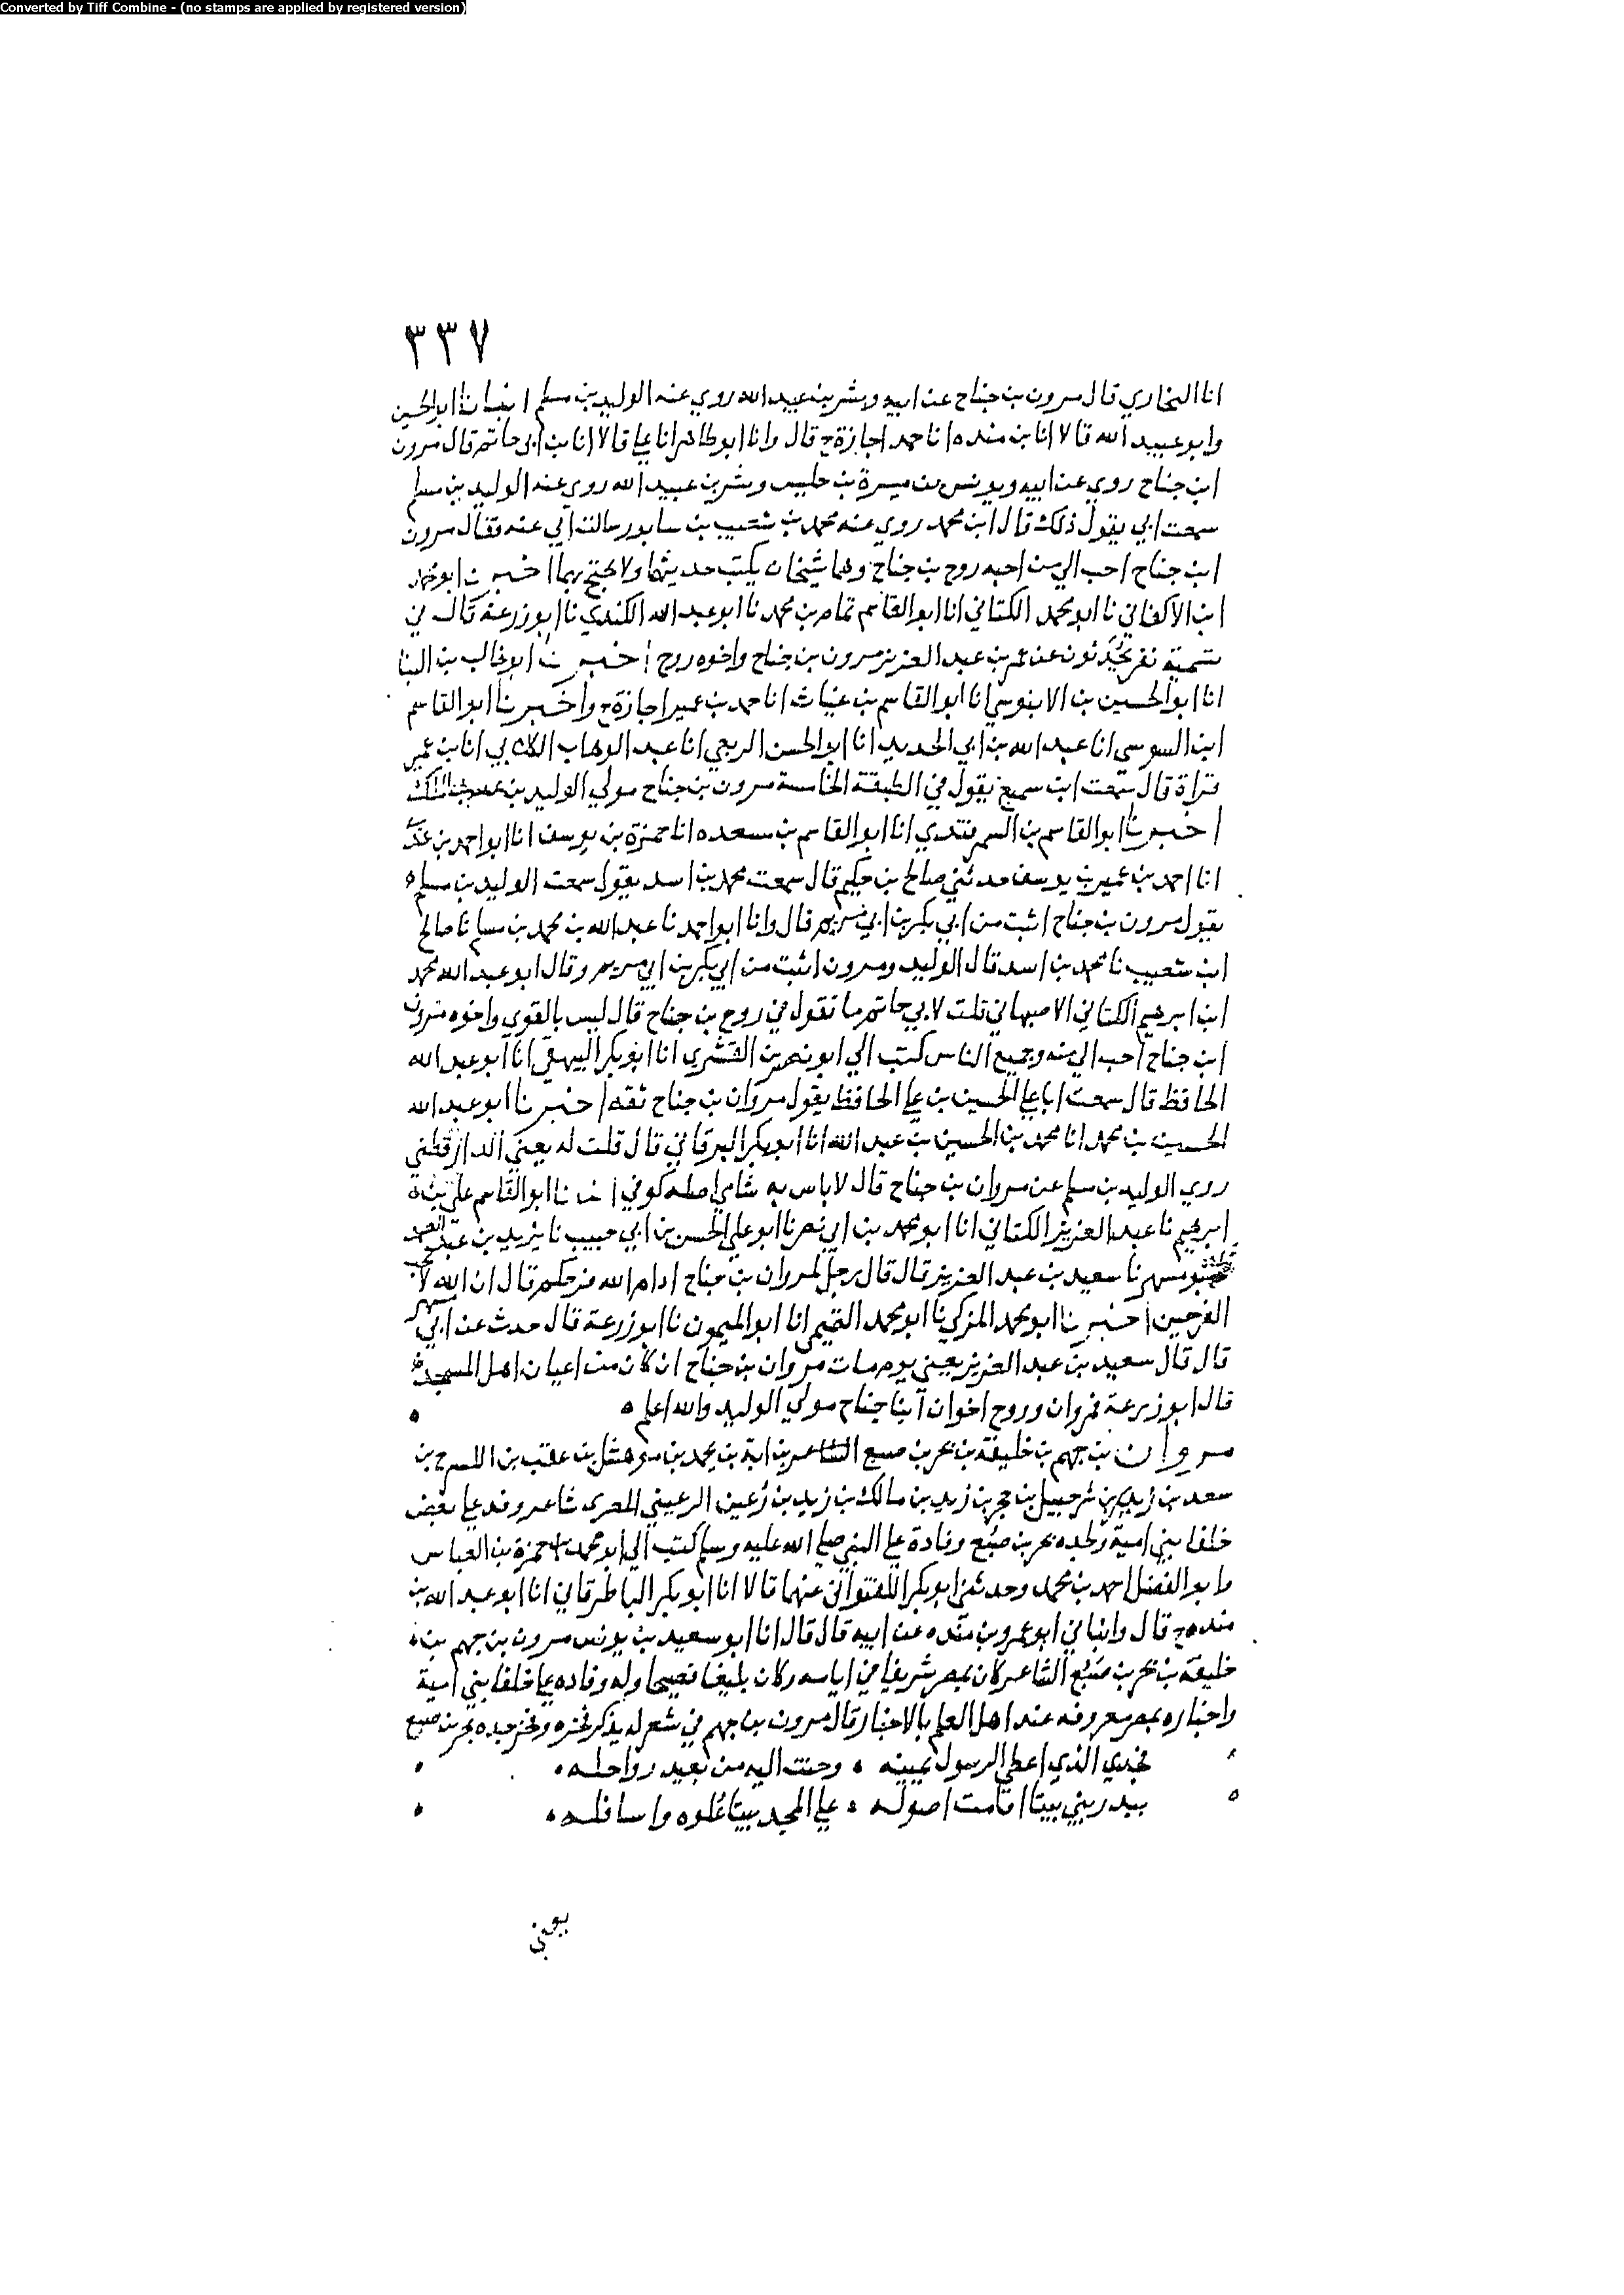 Converted by Tiff Combine - (no stamps are applied by registered version)
٣٣٧
انا البخاري قال مرون بن جناح عن ابيه وبشر بن عبيد الله روي عنه الوليد بن مسلم انبانا ابو الحسين
وابو عبيد الله قالا انا بن منده انا حمد اجازة ح قال وانا ابو طاهر انا علي قالا انا بن ابي حاتم قال مرون
ابن جناح روي عن ابيه ويونس بن ميسرة بن حلبس وبشر بن عبيد الله روي عنه الوليد بن مسلم
سمعت ابي يقول ذلك قال ابن محمد روي عنه محمد بن شعيب بن سابور سالت ابي عنه فقال مرون
ابن جناح احب الي من اخيه روح بن جناح وهما شيخان يكتب حديثهما ولا يحتج بهما اخبرنا ابو محمد
ابن الاكفاني نا ابو محمد الكتاني انا ابو القاسم تمام بن محمد نا ابو عبد الله الكندي نا ابو زرعة قال في
تسمية نفر يحدثون عن عمر بن عبد العزيز مرون بن جناح واخوه روح اخبرنا ابو غالب بن البنا
انا ابو الحسين بن الابنوسي انا ابو القاسم بن غياث انا احمد بن عمير اجازة ح واخبرنا ابو القاسم
ابن السوسي انا عبد الله بن ابي الحديد انا ابو الحسن الربعي انا عبد الوهاب الكلابي انا بن عمير
قراة قال سمعت ابن سميع يقول في الطبقة الخامسة مرون بن جناح مولي الوليد بن عبد الملك
اخبرنا ابو القاسم بن السمرقندي انا ابو القاسم بن مسعده انا حمزة بن يوسف انا ابو احمد بن عدي
انا احمد بن عمير بن يوسف حدثني صالح بن حكيم قال سمعت محمد بن اسد يقول سمعت الوليد بن مسلم
يقول مرون بن جناح اثبت من ابي بكر بن ابي مريم قال وانا ابو احمد نا عبد الله بن محمد بن مسلم نا صالح
ابن شعيب نا محمد بن اسد قال الوليد ومرون اثبت من ابي بكر بن ابي مريم وقال ابو عبد الله محمد
ابن ابرهيم الكتاني الاصبهاني قلت لابي حاتم ما تقول في روح بن جناح قال ليس بالقوي واخوه مرون
ابن جناح احب الي منه وجميع الناس كتب الي ابو نصر بن القشري انا ابو بكر البيهقي انا ابو عبد الله
الحافظ قال سمعت ابا علي الحسين بن علي الحافظ يقول مروان بن جناح ثقه اخبرنا ابو عبد الله
الحسين بن محمد انا محمد بن الحسين بن عبد الله انا ابو بكر البرقاني قال قلت له يعني الدارقطني
روي الوليد بن مسلم عن مروان بن جناح قال لا باس به شامي اصله كوفي انا ابو القاسم علي بن
ابرهيم نا عبد العزيز الكتاني انا ابو محمد بن ابي نصر نا ابو علي الحسن بن ابي حبيب نا يزيد بن عبد الصمد
ابو مسهر نا سعيد بن عبد العزيز قال قال رجل لمروان بن جناح ادام الله فرحكم قال ان الله لا يحب
الفرحين اخبرنا ابو محمد المزكي نا ابو محمد التميمي انا ابو الميمون نا ابو زرعة قال حدث عن ابي مسهر
قال قال سعيد بن عبد العزيز يعني يوم مات مروان بن جناح ان كان من اعيان اهل المسجد
قال ابو زرعة فمروان وروح اخوان ابنا جناح مولي الوليد والله اعلم ه
مروان بن جهم بن خليفة بن بحر بن ضبع الشاعر بن ابة بن يحمد بن موهشل بن عقب بن اللسرح بن
سعد بن زيد بن شرحبيل بن حجر بن زيد بن مالك بن زيد بن رعين الرعيني المصري شاعر وفد علي بعض
خلفا بني امية ولجده بحر بن ضبع وفادة علي النبي صلي الله عليه وسلم كتب الي ابو محمد حمزة بن العباس
وابو الفضل احمد بن محمد وحدثني ابو بكر اللفتواني عنهما قالا انا ابو بكر الباطرقاني انا ابو عبد الله بن
منده ح قال وانباني ابو عمرو بن منده عن ابيه قال قال انا ابو سعيد بن يونس مرون بن جهم بن
خليفة بن بحر بن ضبع الشاعر كان بمصر شريفا في اياسه وكان بليغا فصيحا وله وفاده علي خلفا بني امية
واخباره بمصر معروفه عند اهل العلم بالاخبار قال مرون بن جهم في شعر له يذكر فخره وفخر جده بحر بن ضبع
فجدي الذي اعطي الرسول يمينه ه وحنت اليه من بعيد رواحله ه
ببدر بني بيتا اقامت اصوله ه علي المجد بيتا علوه واسافله ه